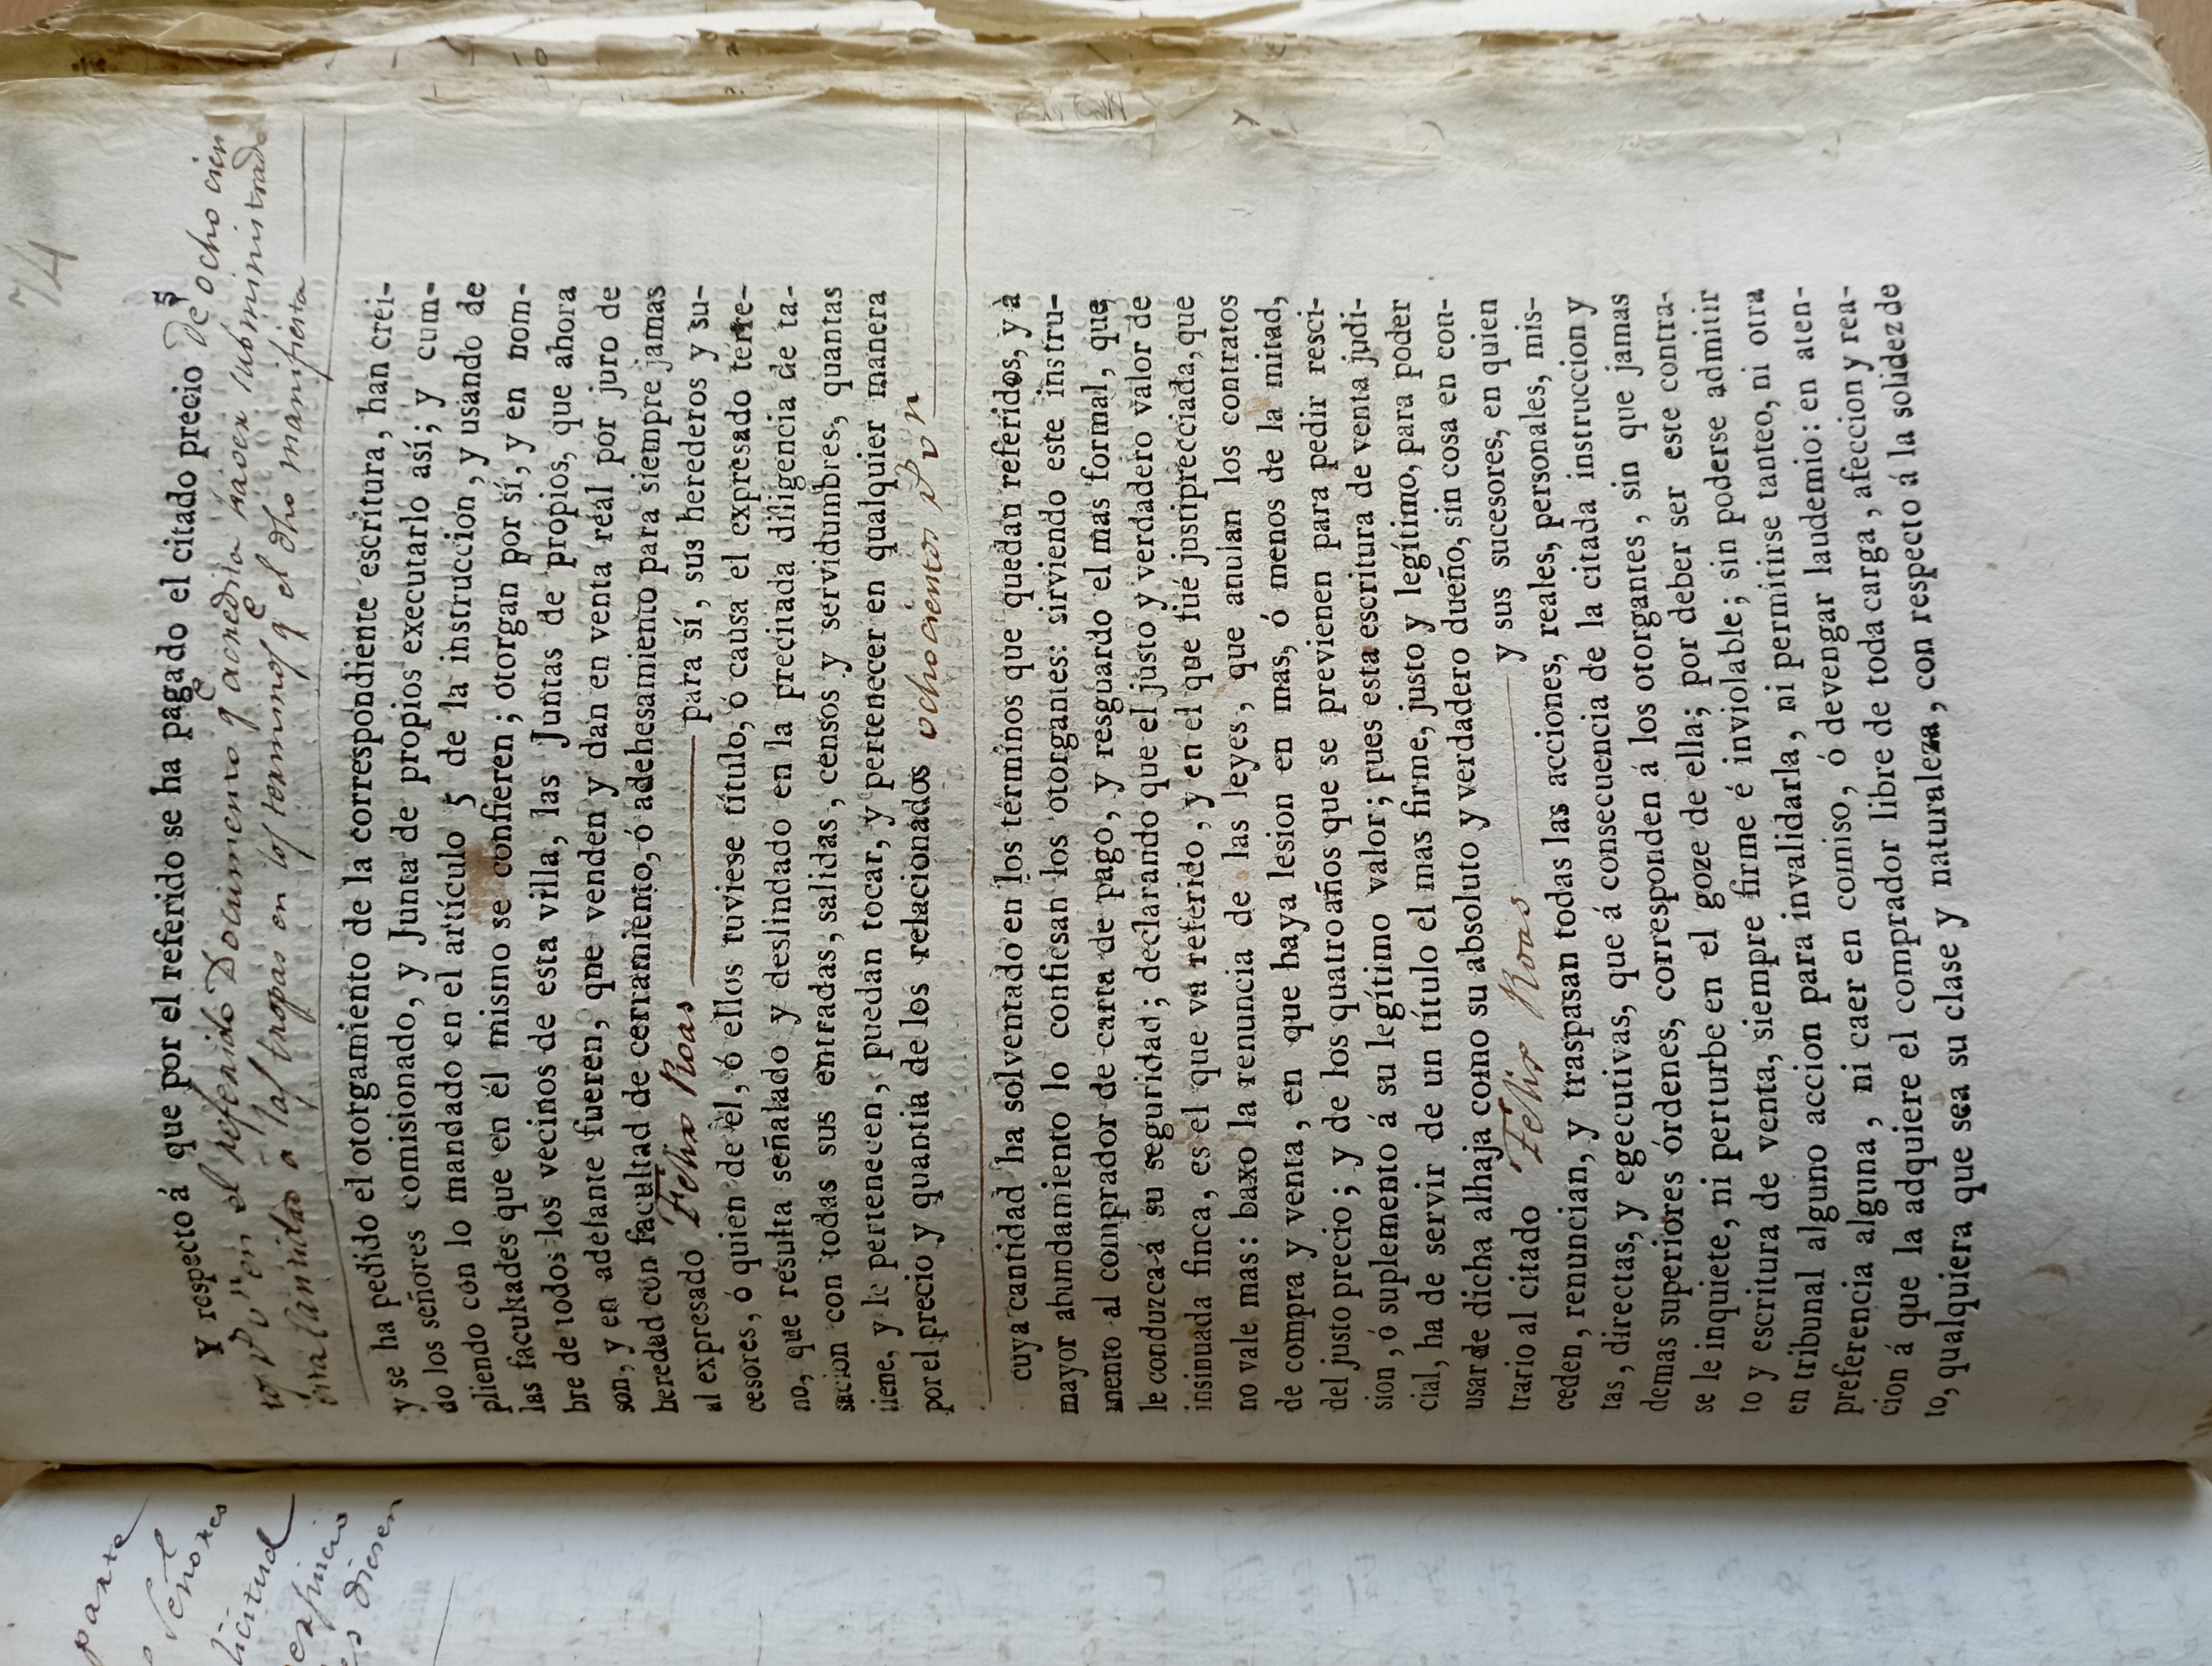 parte
Señores
licitud
dieren
74
5
Y respecto á que por el referido se ha pagado el citado precio de ocho cien
tos rs vn en el referido Documento qe acredita haver subministrado
esta Cantidad a las tropas en los terminos qe el dho manifiesta
y se ha pedido el otorgamiento de la correspondiente escritura, han crei-
do los señores comisionado, y Junta de propios executarlo así; y cum-
pliendo con lo mandado en el artículo 5 de la instruccion, y usando de
las facultades que en él mismo se confieren; otorgan por sí, y en nom-
bre de todos los vecinos de esta villa, las Juntas de propios, que ahora
son, y en adelante fueren, qne venden y dan en venta réal por juro de
heredad con facultad de cerramiento, ó adehesamiento para siempre jamas
al expresado Felix Roas para sí, sus herederos y su-
cesores, ó quien de él, ó ellos tuviese título, ó causa el expresado terre-
no, que resulta señalado y deslindado en la precitada diligencia de ta-
sacion con todas sus entradas, salidas, censos y servidumbres, quantas
tiene, y le pertenecen, puedan tocar, y pertenecer en qualquier manera
por el precio y quantia de los relacionados ochocientos rs vn
cuya cantidad ha solventado en los términos que quedan referidos, y à
mayor abundamiento lo confiesan los otorgantes: sirviendo este instru-
mento al comprador de carta de pago, y resguardo el mas formal, que
le conduzca á su seguridad; declarando que el justo y verdadero valor de
insinuada finca, es el que va referido, y en el que fué justiprecciada, que
no vale mas: baxo la renuncia de las leyes, que anulan los contratos
de compra y venta, en que haya lesion en mas, ó menos de la mitad,
del justo precio; y de los quatro años que se previenen para pedir resci-
sion, ó suplemento á su legítimo valor; pues esta escritura de venta judi-
cial, ha de servir de un título el mas firme, justo y legítimo, para poder
usar de dicha alhaja como su absoluto y verdadero dueño, sin cosa en con-
trario al citado Felix Roas y sus sucesores, en quien
ceden, renuncian, y traspasan todas las acciones, reales, personales, mis-
tas, directas, y egecutivas, que á consecuencia de la citada instruccion y
demas superiores órdenes, corresponden á los otorgantes, sin que jamas
se le inquiete, ni perturbe en el goze de ella; por deber ser este contra-
to y escritura de venta, siempre firme é inviolable; sin poderse admitir
en tribunal alguno accion para invalidarla, ni permitirse tanteo, ni otra
preferencia alguna, ni caer en comiso, ó devengar laudemio: en aten-
cion á que la adquiere el comprador libre de toda carga, afeccion y rea-
to, qualquiera que sea su clase y naturaleza, con respecto á la solidez de